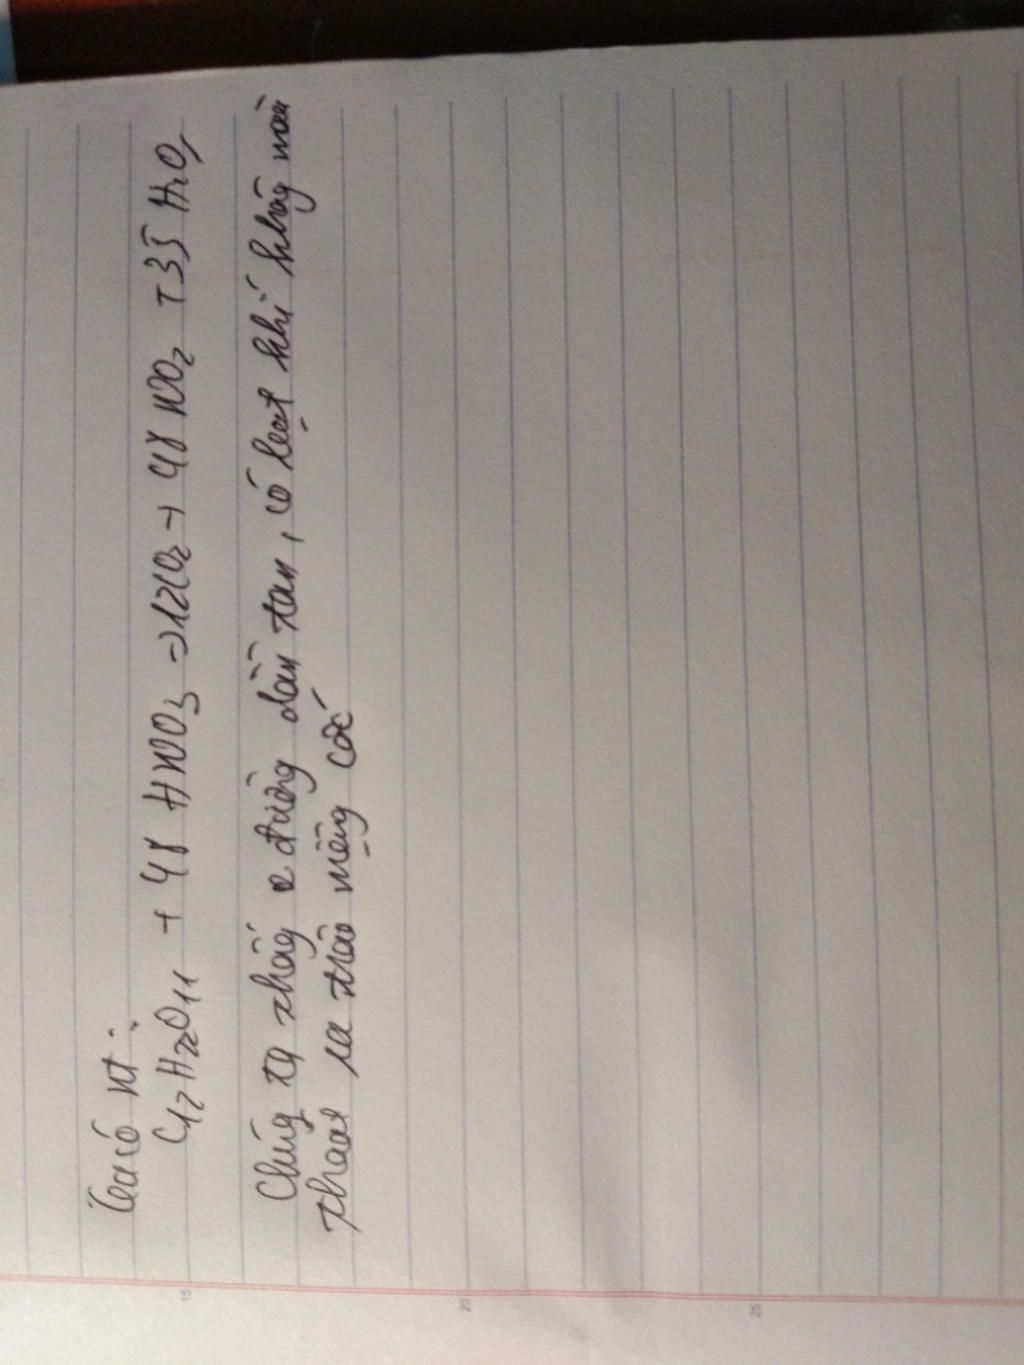 Ta có pt:
C12H22O11 + 48 HNO3 → 12CO2 + 48 NO2 + 35 H2O
Chúng ta thấy đường dần tan, có loạt khí không màu
thoat ra trào miệng cốc
15
20
25